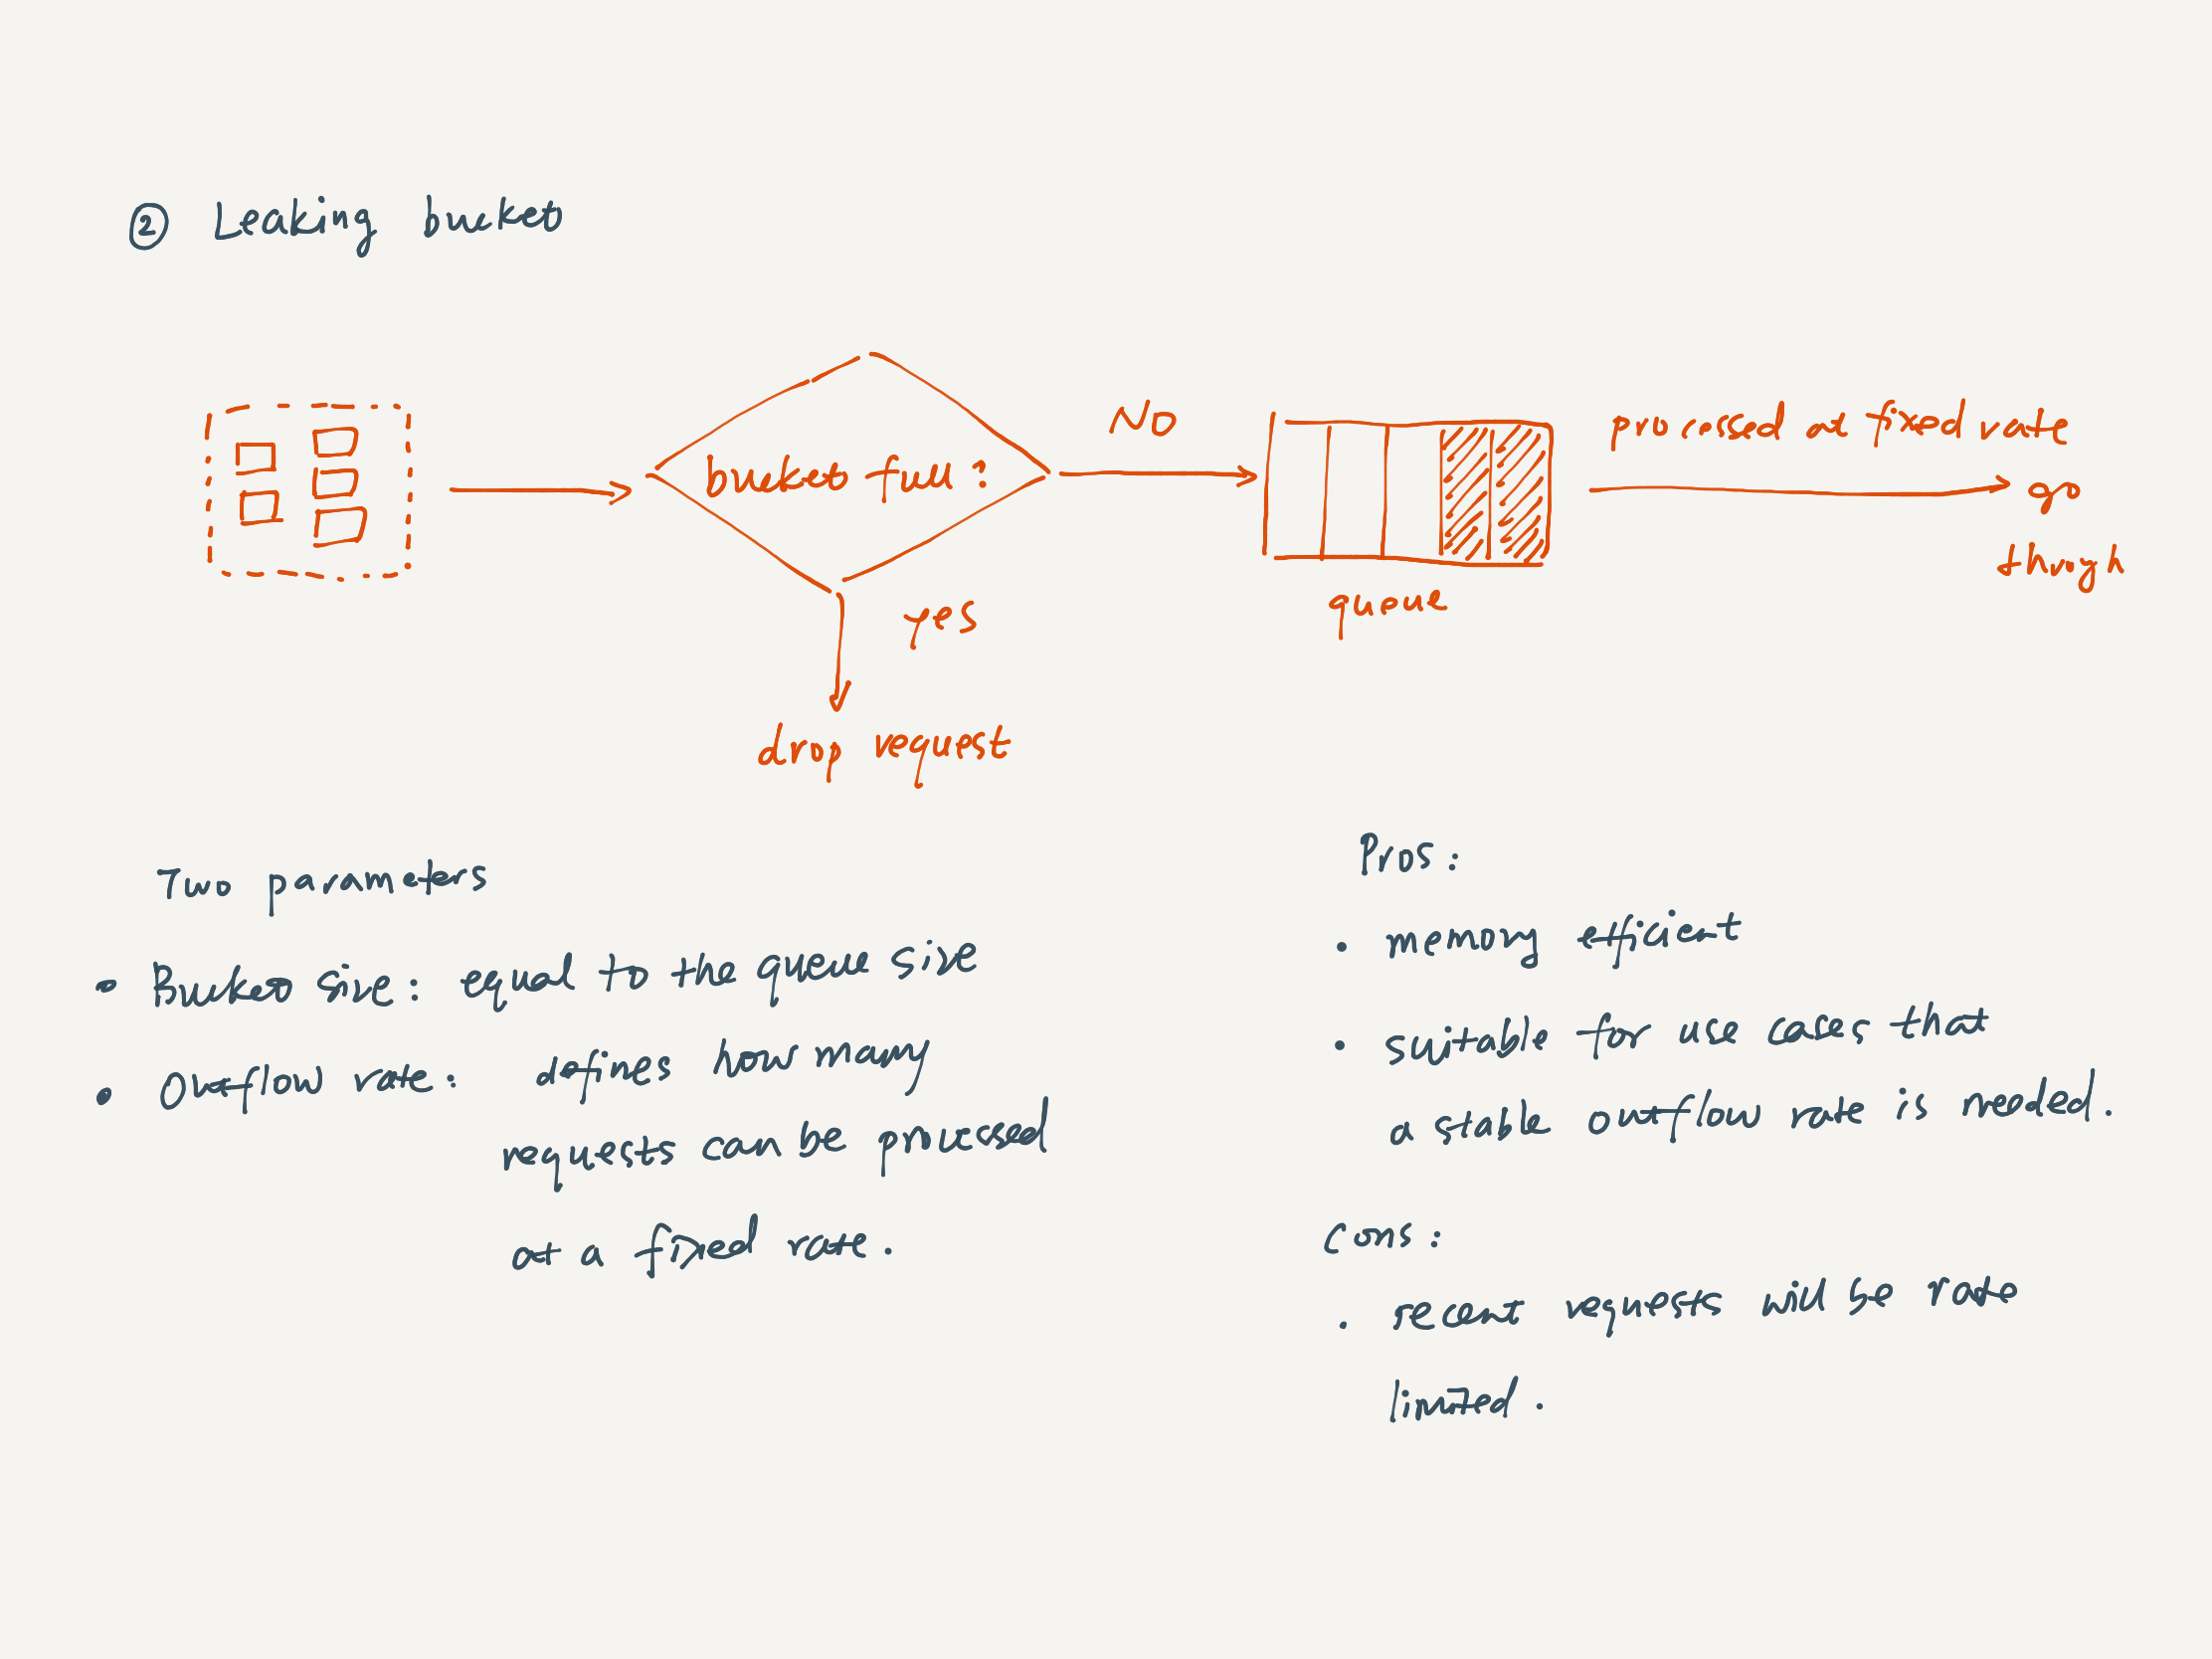 ② Leaking bucket
bucket full?
NO
processed at fixed rate
go
through
queue
yes
drop request
Two parameters
• Bucket size: equal to the queue size
• Outflow rate: defines how many
requests can be processed
at a fixed rate.
Pros:
• memory efficient
• suitable for use cases that
a stable outflow rate is needed.
Cons:
• recent requests will be rate
limited.